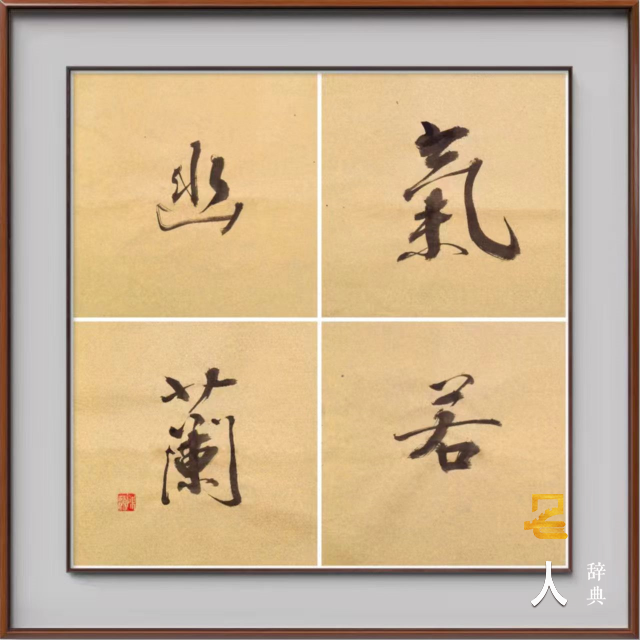 氣若
幽蘭
名人
辞典